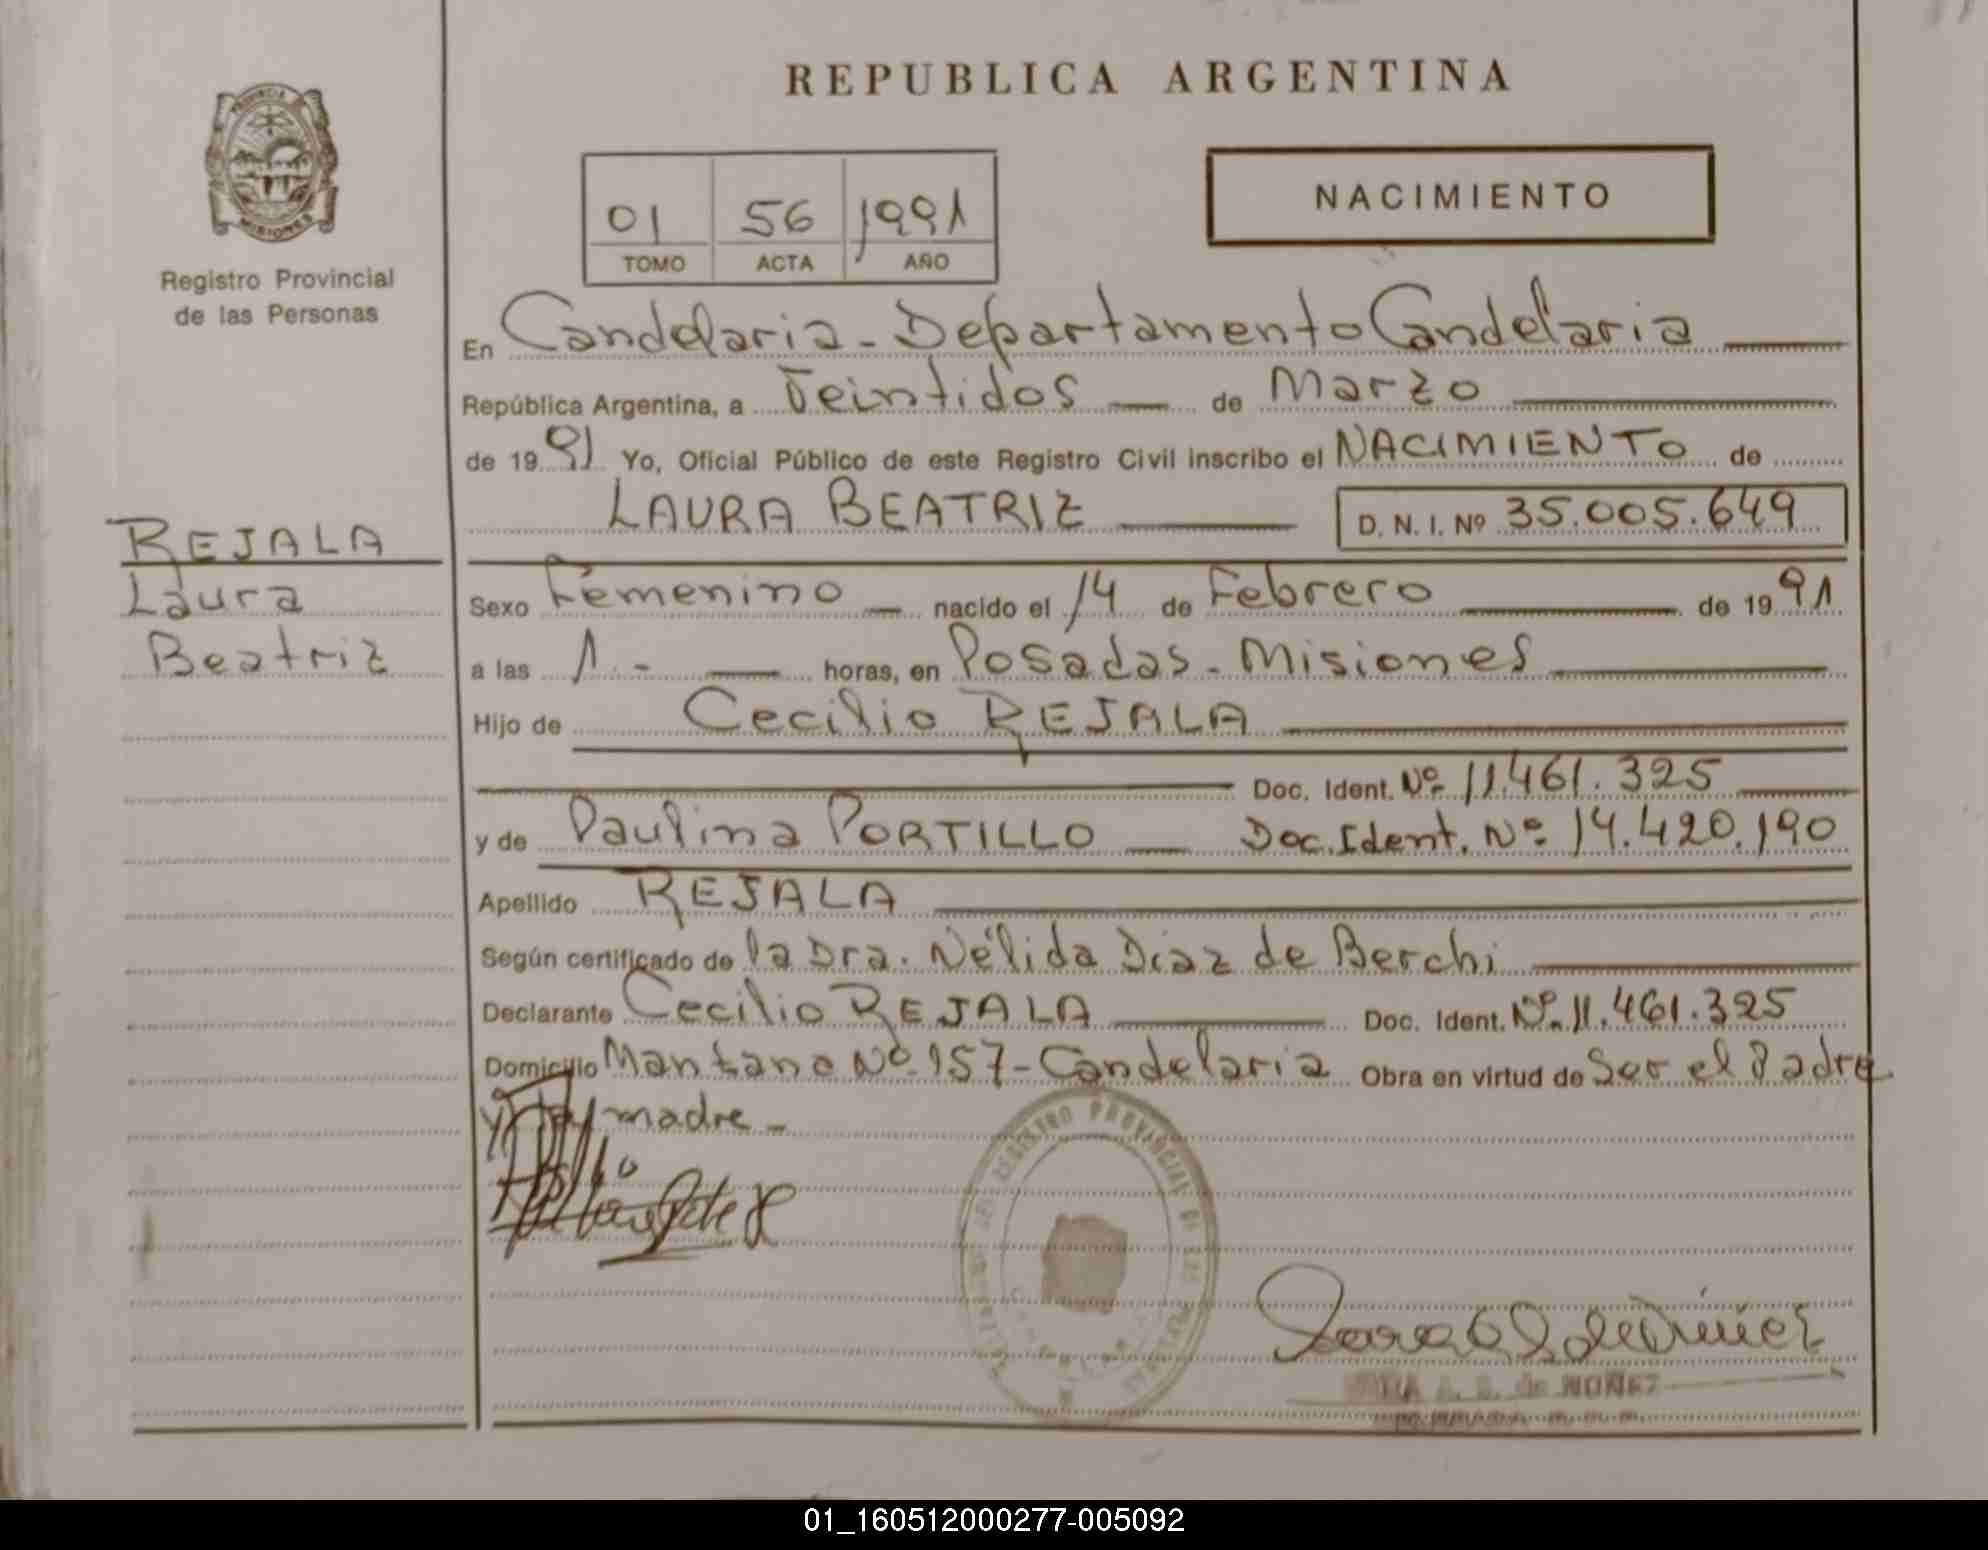 REPUBLICA ARGENTINA
PROVINCIA
MISIONES
Registro Provincial
de las Personas
01 56 1991
TOMO ACTA AÑO
NACIMIENTO
En Candelaria - Departamento Candelaria
República Argentina, a Veintidos de Marzo
de 19 91 Yo, Oficial Público de este Registro Civil inscribo el NACIMIENTO de
LAURA BEATRIZ D. N. I. Nº 35.005.649
REJALA
Laura
Beatriz
Sexo Femenino nacido el 14 de Febrero de 19 91
a las 1.- horas, en Posadas - Misiones
Hijo de Cecilio REJALA
Doc. Ident. Nº 11.461.325
y de Paulina PORTILLO Doc. Ident. Nº 14.420.190
Apellido REJALA
Según certificado de la Dra. Nélida Díaz de Berchi
Declarante Cecilio REJALA Doc. Ident. Nº 11.461.325
Domicilio Nº 157 - Candelaria Obra en virtud de Ser el Padre
y la madre -
REGISTRO PROVINCIAL DE LAS PERSONAS
A. S. de NUÑEZ
01_160512000277-005092